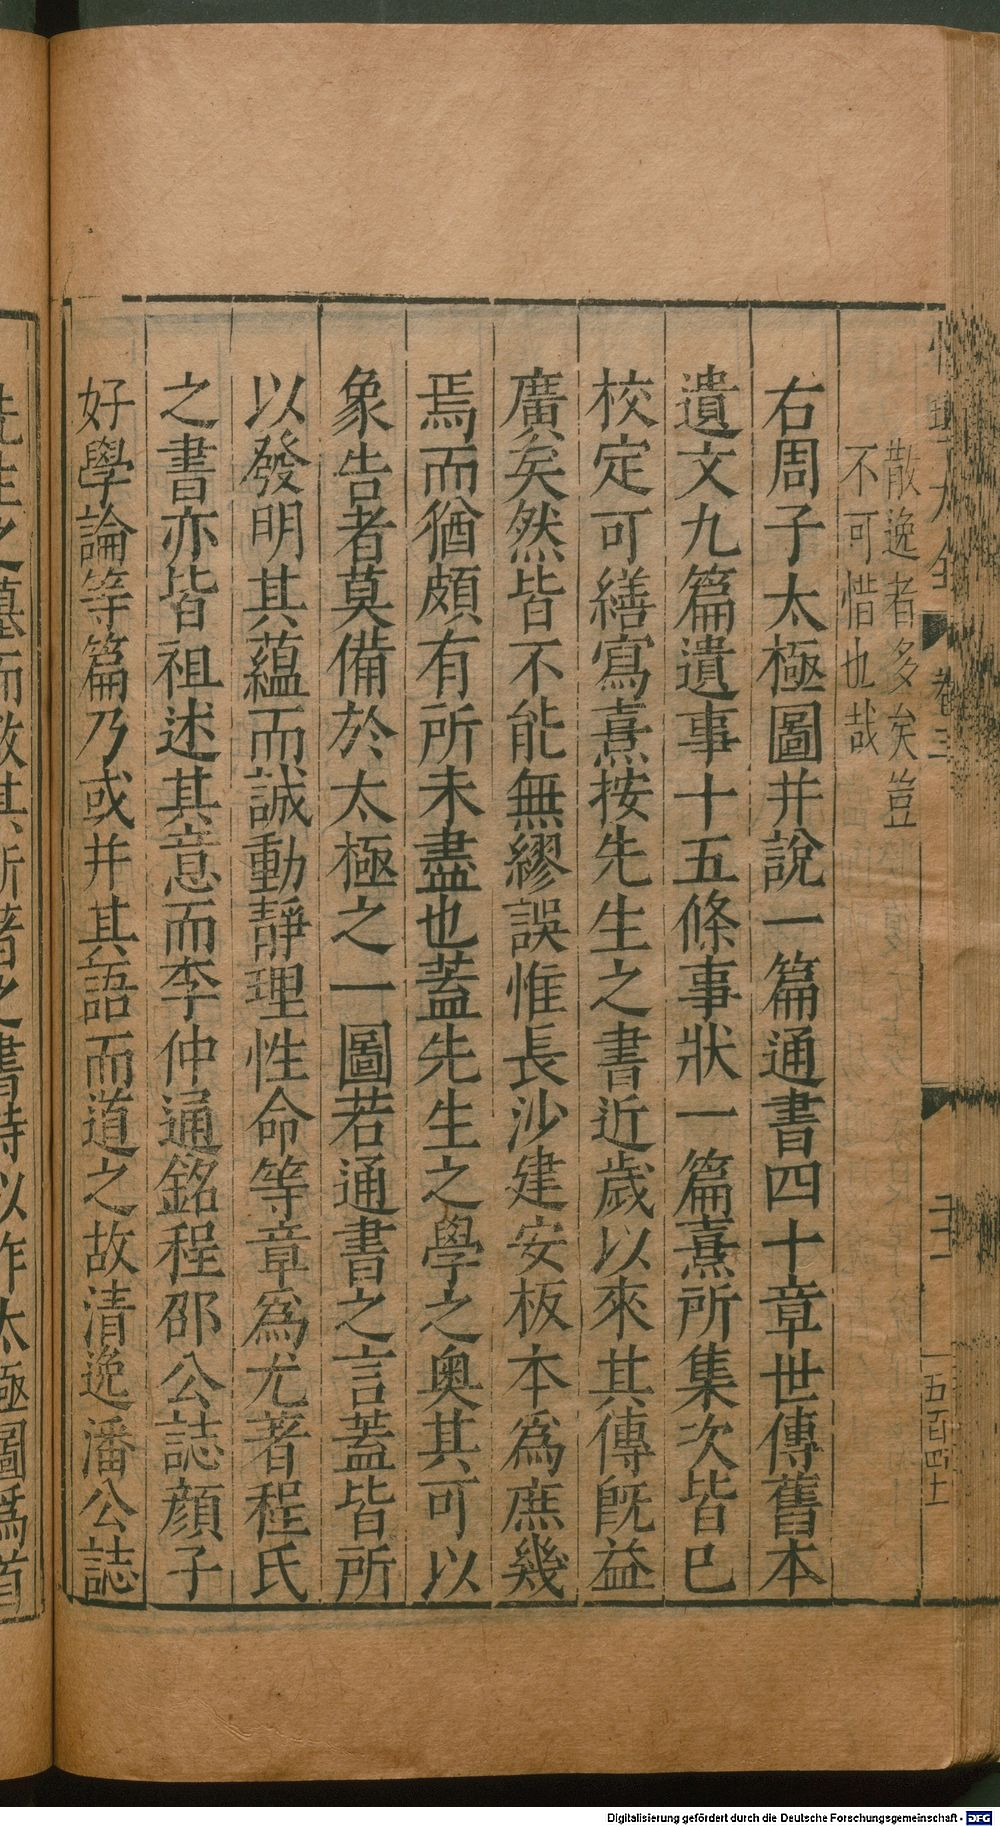 散逸者多矣豈
不可惜也哉
右周子太極圖并說一篇通書四十章世傳舊本
遺文九篇遺事十五條事狀一篇熹所集次皆已
校定可繕寫熹按先生之書近歲以來其傳既益
廣矣然皆不能無繆誤惟長沙建安板本為庶幾
焉而猶頗有所未盡也蓋先生之學之奧其可以
象告者莫備於太極之一圖若通書之言蓋皆所
以發明其蘊而誠動靜理性命等章為尤著程氏
之書亦皆祖述其意而李仲通銘程邵公誌顔子
好學論等篇乃或并其語而道之故清逸潘公誌
先生之墓而敘其所著之書特以作太極圖爲首
大全 卷三
五百四十
Digitalisierung gefördert durch die Deutsche Forschungsgemeinschaft - DFG